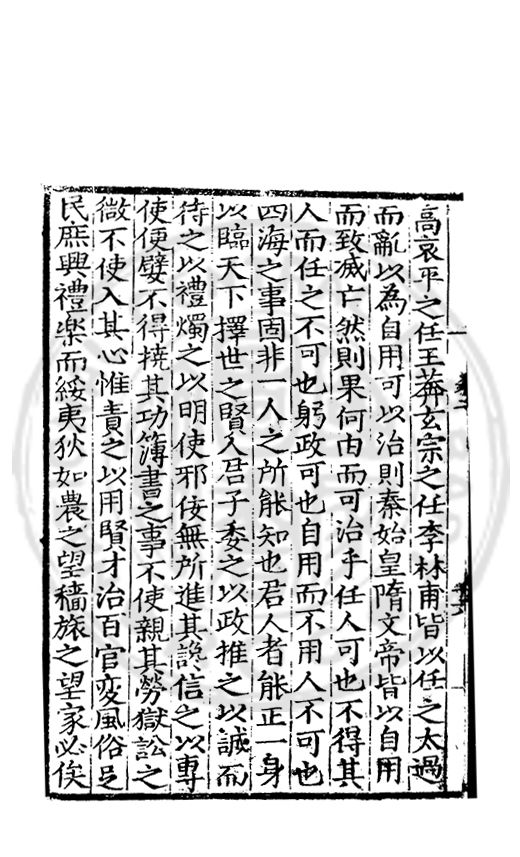 高哀平之任王莽玄宗之任李林甫皆以任之太過
而亂以為自用可以治則秦始皇隋文帝皆以自用
而致滅亡然則果何由而可治乎任人可也不得其
人而任之不可也躬政可也自用而不用人不可也
四海之事固非一人之所能知也君人者能正一身
以臨天下擇世之賢人君子委之以政推之以誠而
待之以禮燭之以明使邪佞無所進其讒信之以專
使便嬖不得撓其功簿書之事不使親其勞獄訟之
微不使入其心惟責之以用賢才治百官変風俗足
民庶興禮楽而綏夷狄如農之望穡旅之望家必俟